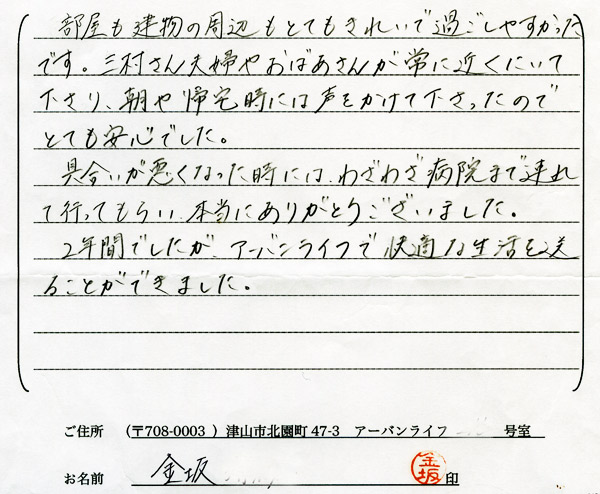 部屋も建物の周辺もとてもきれいで過ごしやすかった
です。三村さん夫婦やおばあさんが常に近くにいて
下さり、朝や帰宅時には声をかけて下さったので
とても安心でした。
具合いが悪くなった時には、わざわざ病院まで連れ
て行ってもらい、本当にありがとうございました。
2年間でしたが、アーバンライフで快適な生活を送
ることができました。
ご住所 (〒708-0003 ) 津山市北園町 47-3 アーバンライフ 号室
お名前 金坂 金坂 印